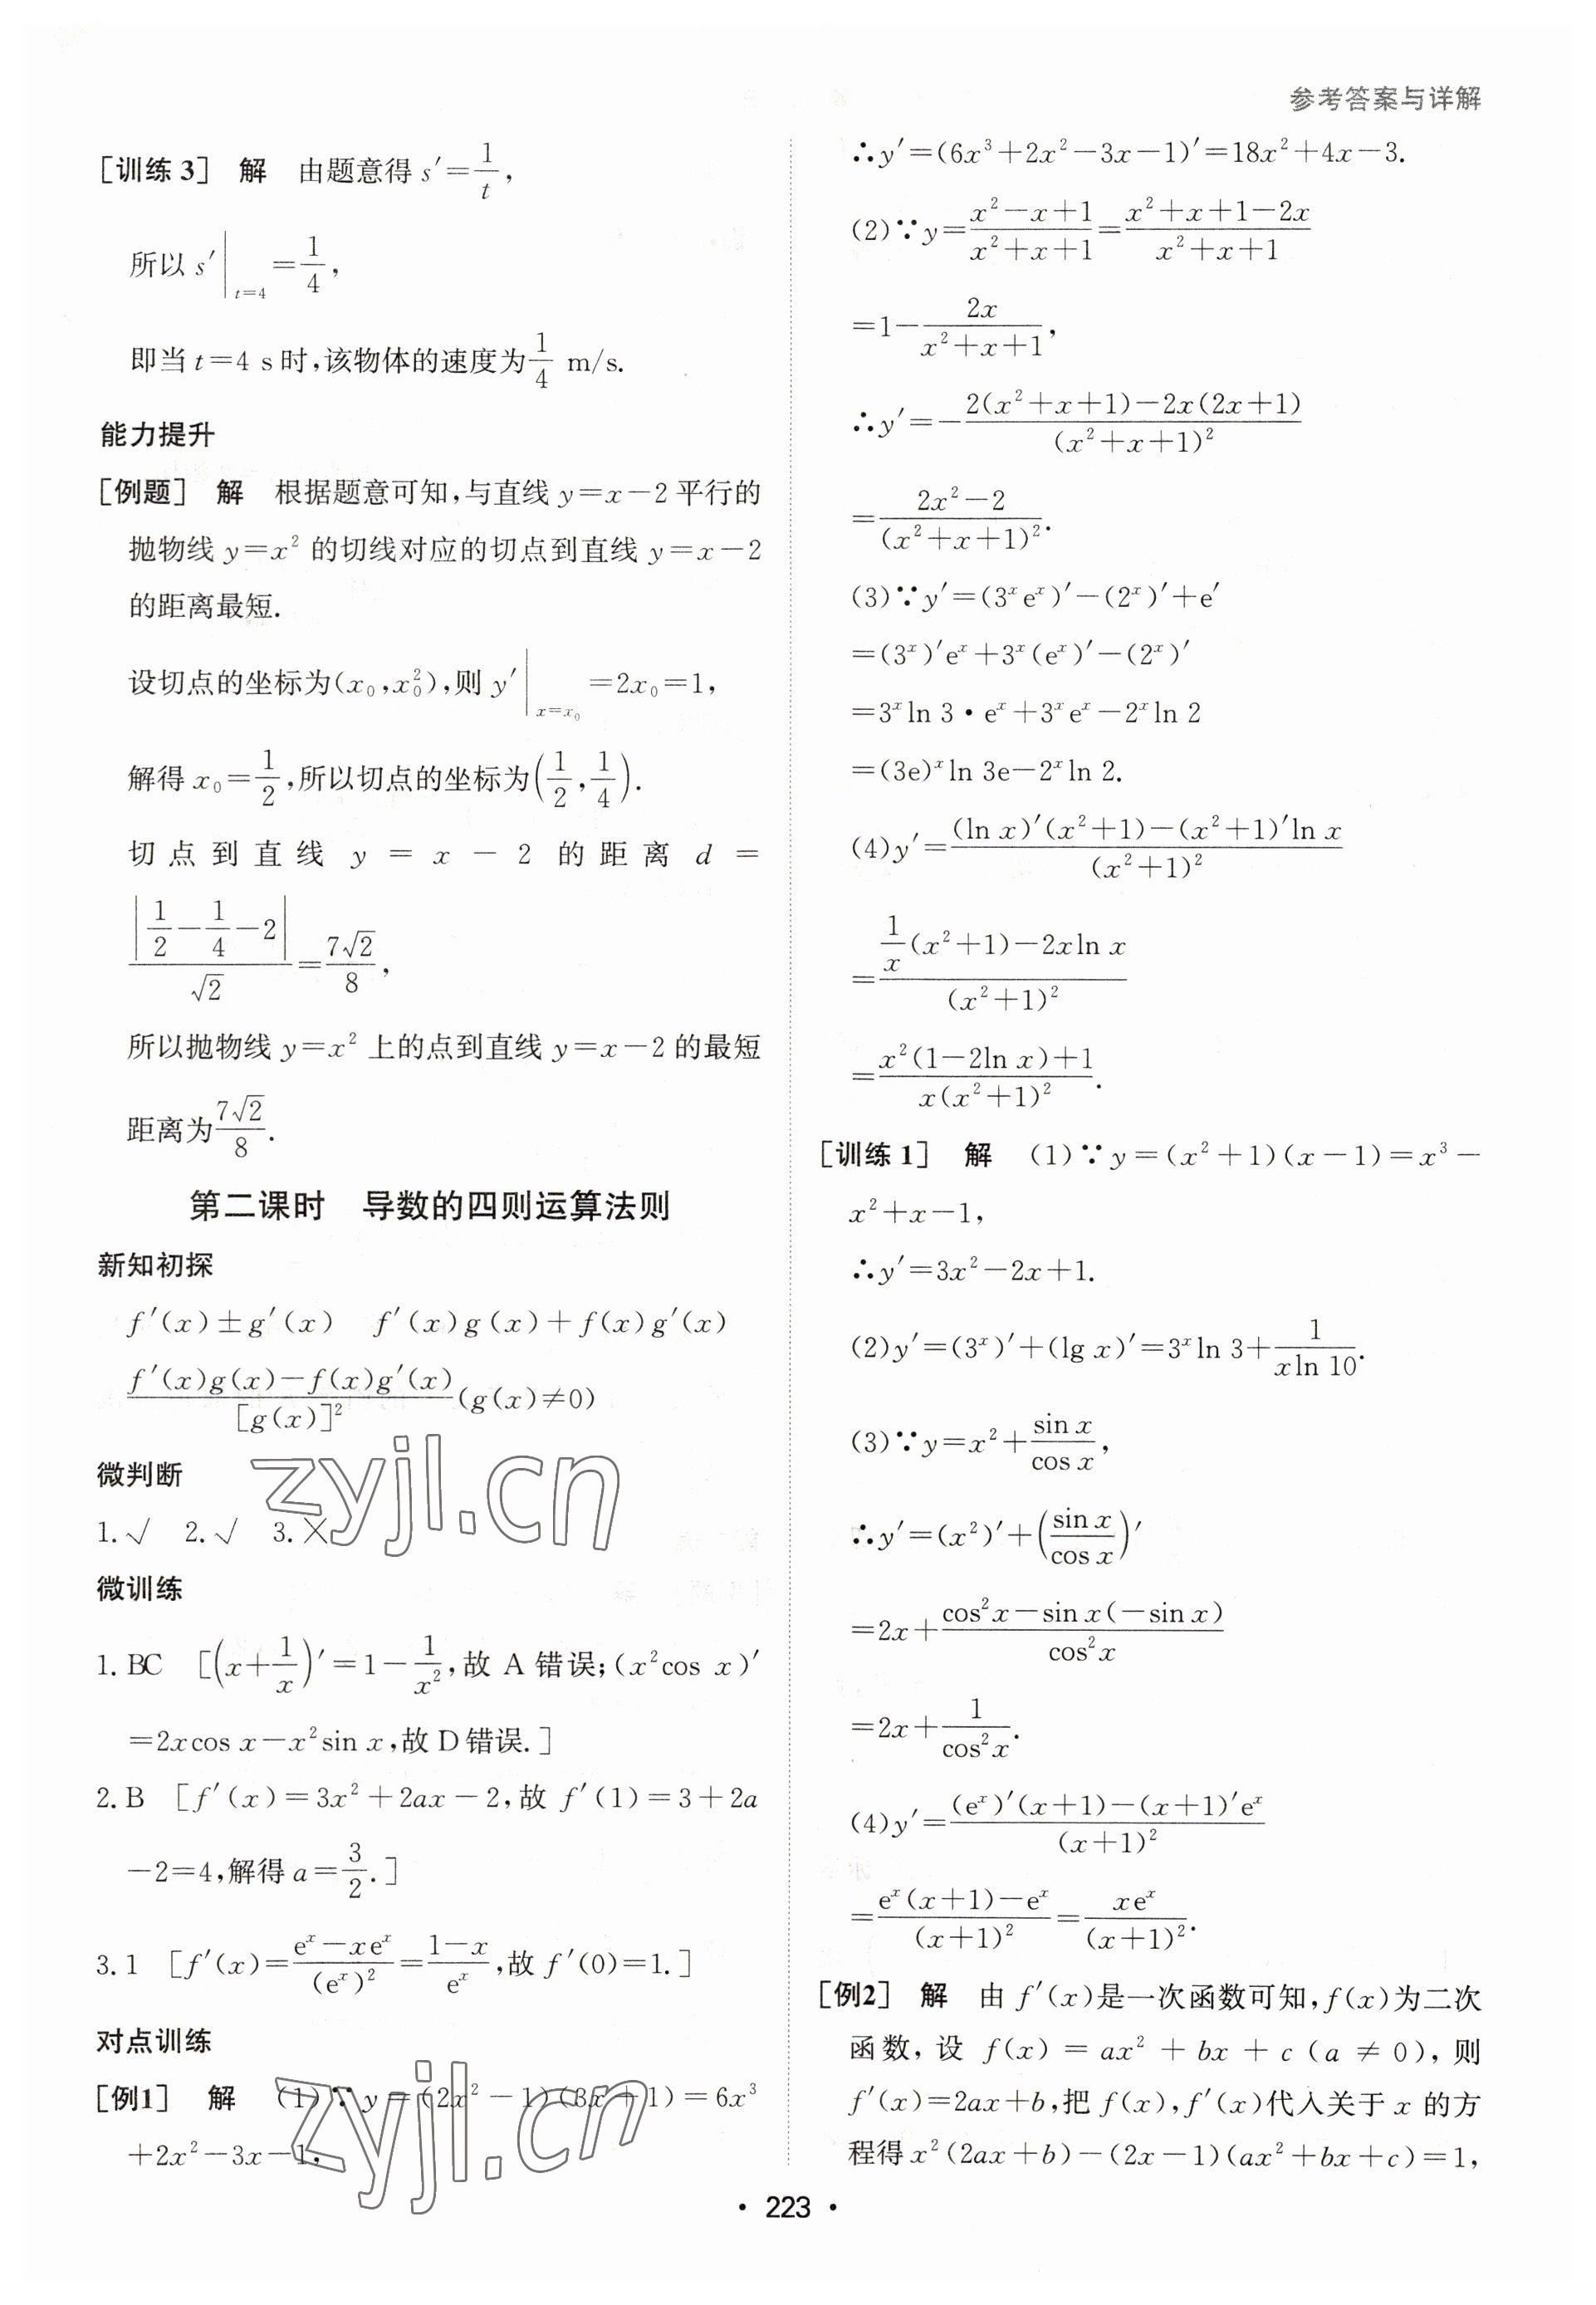 参考答案与详解
[训练3] 解 由题意得 s′=1/t,
所以 s′|_{t=4}=1/4,
即当 t=4 s时,该物体的速度为1/4 m/s.
能力提升
[例题] 解 根据题意可知,与直线 y=x-2 平行的
抛物线 y=x² 的切线对应的切点到直线 y=x-2
的距离最短.
设切点的坐标为(x₀,x₀²),则 y′|_{x=x₀}=2x₀=1,
解得 x₀=1/2,所以切点的坐标为(1/2,1/4).
切点到直线 y=x-2 的距离 d=
|1/2-1/4-2|/√2=7√2/8,
所以抛物线 y=x² 上的点到直线 y=x-2 的最短
距离为7√2/8.
第二课时 导数的四则运算法则
新知初探
f′(x)±g′(x) f′(x)g(x)+f(x)g′(x)
(f′(x)g(x)-f(x)g′(x))/[g(x)]²(g(x)≠0)
微判断
1.√ 2.√ 3.×
微训练
1.BC [(x+1/x)′=1-1/x²,故 A 错误;(x²cos x)′
=2xcos x-x²sin x,故 D 错误.]
2.B [f′(x)=3x²+2ax-2,故 f′(1)=3+2a
-2=4,解得 a=3/2.]
3.1 [f′(x)=(eˣ-xeˣ)/(eˣ)²=(1-x)/eˣ,故 f′(0)=1.]
对点训练
[例1] 解 (1)∵y=(2x²-1)(3x+1)=6x³
+2x²-3x-1,
∴y′=(6x³+2x²-3x-1)′=18x²+4x-3.
(2)∵y=(x²-x+1)/(x²+x+1)=(x²+x+1-2x)/(x²+x+1)
=1-2x/(x²+x+1),
∴y′=-(2(x²+x+1)-2x(2x+1))/(x²+x+1)²
=(2x²-2)/(x²+x+1)².
(3)∵y′=(3ˣeˣ)′-(2ˣ)′+e′
=(3ˣ)′eˣ+3ˣ(eˣ)′-(2ˣ)′
=3ˣln 3·eˣ+3ˣeˣ-2ˣln 2
=(3e)ˣln 3e-2ˣln 2.
(4)y′=((ln x)′(x²+1)-(x²+1)′ln x)/(x²+1)²
=(1/x(x²+1)-2xln x)/(x²+1)²
=(x²(1-2ln x)+1)/(x(x²+1)²).
[训练1] 解 (1)∵y=(x²+1)(x-1)=x³-
x²+x-1,
∴y′=3x²-2x+1.
(2)y′=(3ˣ)′+(lg x)′=3ˣln 3+1/(xln 10).
(3)∵y=x²+sin x/cos x,
∴y′=(x²)′+(sin x/cos x)′
=2x+(cos²x-sin x(-sin x))/cos²x
=2x+1/cos²x.
(4)y′=((eˣ)′(x+1)-(x+1)′eˣ)/(x+1)²
=(eˣ(x+1)-eˣ)/(x+1)²=xeˣ/(x+1)².
[例2] 解 由 f′(x)是一次函数可知,f(x)为二次
函数,设 f(x)=ax²+bx+c(a≠0),则
f′(x)=2ax+b,把 f(x),f′(x)代入关于 x 的方
程得 x²(2ax+b)-(2x-1)(ax²+bx+c)=1,
zyjl.cn
zyjl.cn
· 223 ·